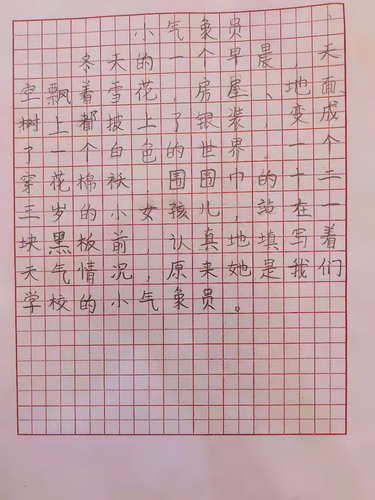 小气象员
冬天的一个早晨,天
空飘着雪花 房屋、地面、
树上都披上了银装,变成
了一个白色的世界 一个
穿花棉袄 围围巾 的十二
三岁的小女孩儿,站在一
块黑板前 认真地填写着
天气情况,原来她是我们
学校的小气象员。